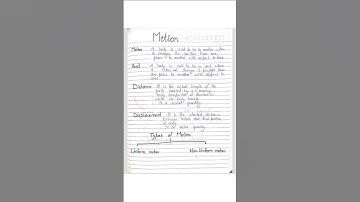 Motion
Motion A body is said to be in motion when
it changes its position from one
place to another with respect to time.
Rest A body is said to be in rest when
it not change its position from
one place to another with respect to
time.
Distance It is the actual length of the
path covered by a moving
body irrespective of direction
in which the body travels
is a scalar quantity.
Displacement It is the shortest distance
between initial and final position
of body.
is a vector quantity.
Types of Motion
Uniform motion Non-Uniform motion